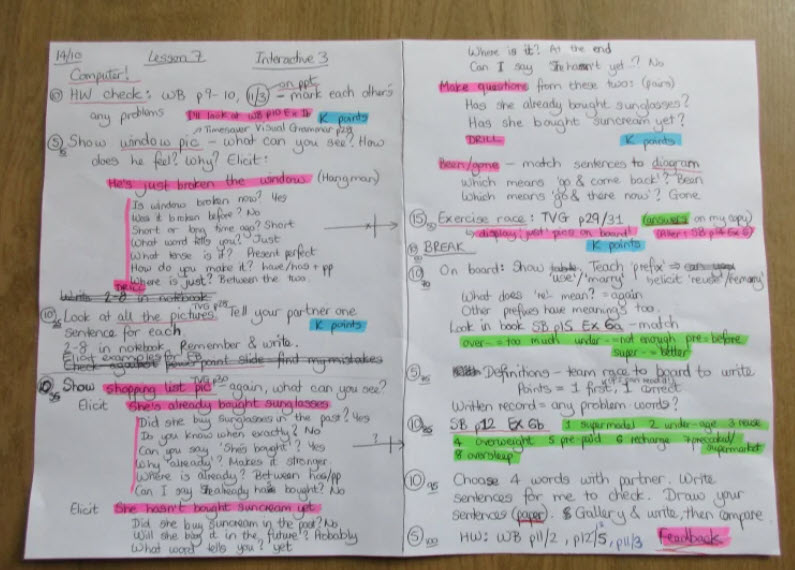 14/10 Lesson 7 Interactive 3
Computer!
on ppt
HW check: WB p9-10, 11/3 - mark each other's
any problems I'll look at WB p10 Ex K points
Timesaver Visual Grammar p28
5 Show window pic - what can you see? How
does he feel? Why? Elicit:
He's just broken the window (Hangman)
Is window broken now? Yes
Was it broken before? No
Short or long time ago? Short
What word tells you? Just
What tense is it? Present perfect
How do you make it? have/has + pp
Where is just? Between the two.
DRILL
Write 2-8 in notebook
10 Look at all the pictures. Tell your partner one
sentence for each. K points
2-8 in notebook. Remember & write.
Elicit examples for
Check against powerpoint slide - find my mistakes
Show shopping list pic again, what can you see?
Elicit She's already bought sunglasses
Did she buy sunglasses in the past? Yes
Do you know when exactly? No
Can you say 'She's bought'? Yes
?
Why 'already'? Makes it stronger.
Where is already? Between has/pp
Can I say She already has bought? No
Elicit She hasn't bought suncream yet
Did she buy suncream in the past? No
Will she buy it in the future? Probably
What word tells you? yet
Where is it? At the end
Can I say She hasn't yet..? No
Make questions from these two: (pairs)
Has she already bought sunglasses?
Has she bought suncream yet?
DRILL K points
Been/gone - match sentences to diagram
Which means 'go & come back'? Been
Which means 'go & there now'? Gone
15 Exercise race: TVG p29/31 (answers on my copy)
display 'just' pics on board!
K points
BREAK
10 On board: Show Teach 'prefix' ⇒
'use'/'marry' elicit 'reuse'/'remarry'
What does 're'- mean? = again
Other prefixes have meanings too.
Look in book SB p15 Ex 6a - match
over- = too much under- = not enough pre = before
super- = better
5 Definitions - team race to board to write
Points = 1 first, 1 correct
Written record = any problem words?
10 SB p12 Ex 6b 1 supermodel 2 under-age 3
4 overweight 5 pre-paid 6 recharge 7 precooked/
supermarket
8 oversleep
10 95 Choose 4 words with partner. Write
sentences for me to check. Draw your
sentences (paper). Gallery & write, then compare.
5 100 HW: WB p11/2, p12/5, p11/3 Feedback